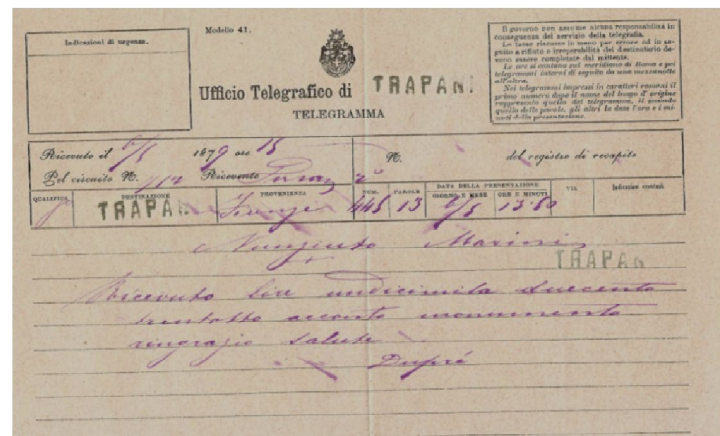 Indicazioni di urgenza.
Modello 41.
Ufficio Telegrafico di TRAPANI
TELEGRAMMA
Il governo non assume alcuna responsabilità in
conseguenza del servizio della telegrafia.
Le tasse riscosse in meno per errore od in se-
guito a rifiuto o irreperibilità del destinatario de-
vono essere completate dal mittente.
Le ore si contano sul meridiano di Roma e pei
telegrammi interni di seguito da una mezzanotte
all'altra.
Nei telegrammi impressi in caratteri romani il
primo numero dopo il nome del luogo d'origine
rappresenta quello del telegramma, il secondo
quello delle parole, gli altri la data l'ora e i mi-
nuti della presentazione.
Ricevuto il 6/5 1879 ore 15
N. del registro di recapito
Pel circuito N. 112 Ricevente
QUALIFICA DESTINAZIONE PROVENIENZA NUM. PAROLE DATA DELLA PRESENTAZIONE VIA
GIORNO E MESE ORE E MINUTI
TRAPANI Firenze 445 13 6/5 13·50
Nunzinto Marini
TRAPANI
Ricevuto lire undicimila duecento
trentotto acconto monumento
ringrazio saluto
Dupré